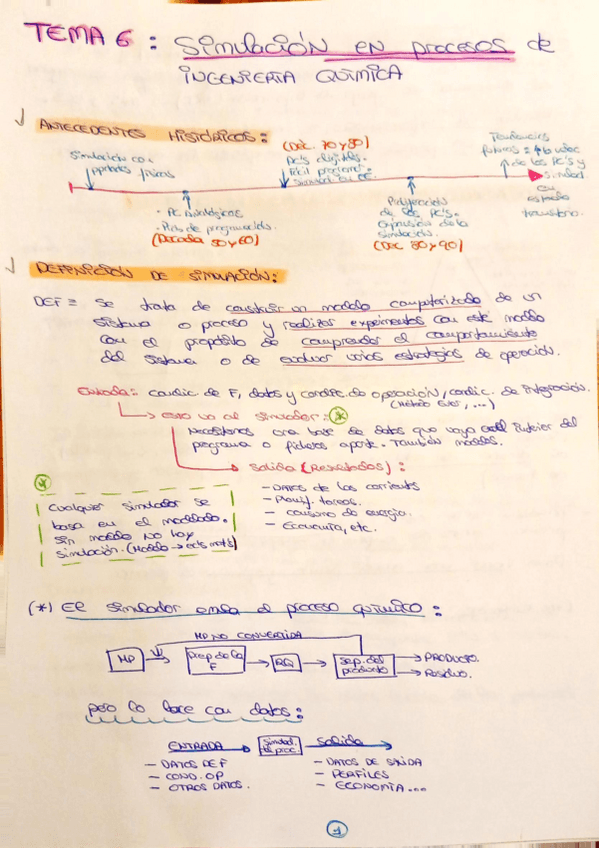 TEMA 6 : Simulación en procesos de
INGENIERIA QUIMICA
ANTECEDENTES HISTÓRICOS:
Simulación con
aptdos físicos
• PC Analógicos
• Pkts de programación.
(Década 50 y 60)
(Déc. 70 y 80)
PC's digitales.
Fácil program.
Simulac. en EE.
Proliferación
de los PC's.
Expansión de la
simulación.
(Déc 80 y 90)
Tendencias
futuras = ↑ la veloc
de los PC's y
simulad
en
estado
transitorio.
DEFINICIÓN DE SIMULACIÓN:
DEF ≡ Se trata de construir un modelo computarizado de un
sistema o proceso y realizar experimentos con este modelo
con el propósito de comprender el comportamiento
del sistema o de evaluar varias estrategias de operación.
Entrada: condic. de F, datos y condic. de operación, condic. de integración.
(Método Euler, ...)
→ esto va al simulador: *
Necesitamos una base de datos que vaya en el interior del
programa o ficheros aparte. También modelos.
→ Salida (Resultados):
- Datos de las corrientes
- consumo de energía.
- Economía, etc.
*
Cualquier simulador se
basa en el modelado.
Sin modelo no hay
simulación. (Modelo → ects mat's)
(*) El simulador emula el proceso químico:
MP NO CONVERTIDA
MP
Prep de la
F
RQ
Sep. del
producto
→ PRODUCTO.
→ Residuo.
pero lo hace con datos:
ENTRADA
Simulad.
de proc.
Salida
- DATOS DE F
- COND. OP
- OTROS DATOS.
- DATOS DE SALIDA
- PERFILES
- ECONOMÍA...
1